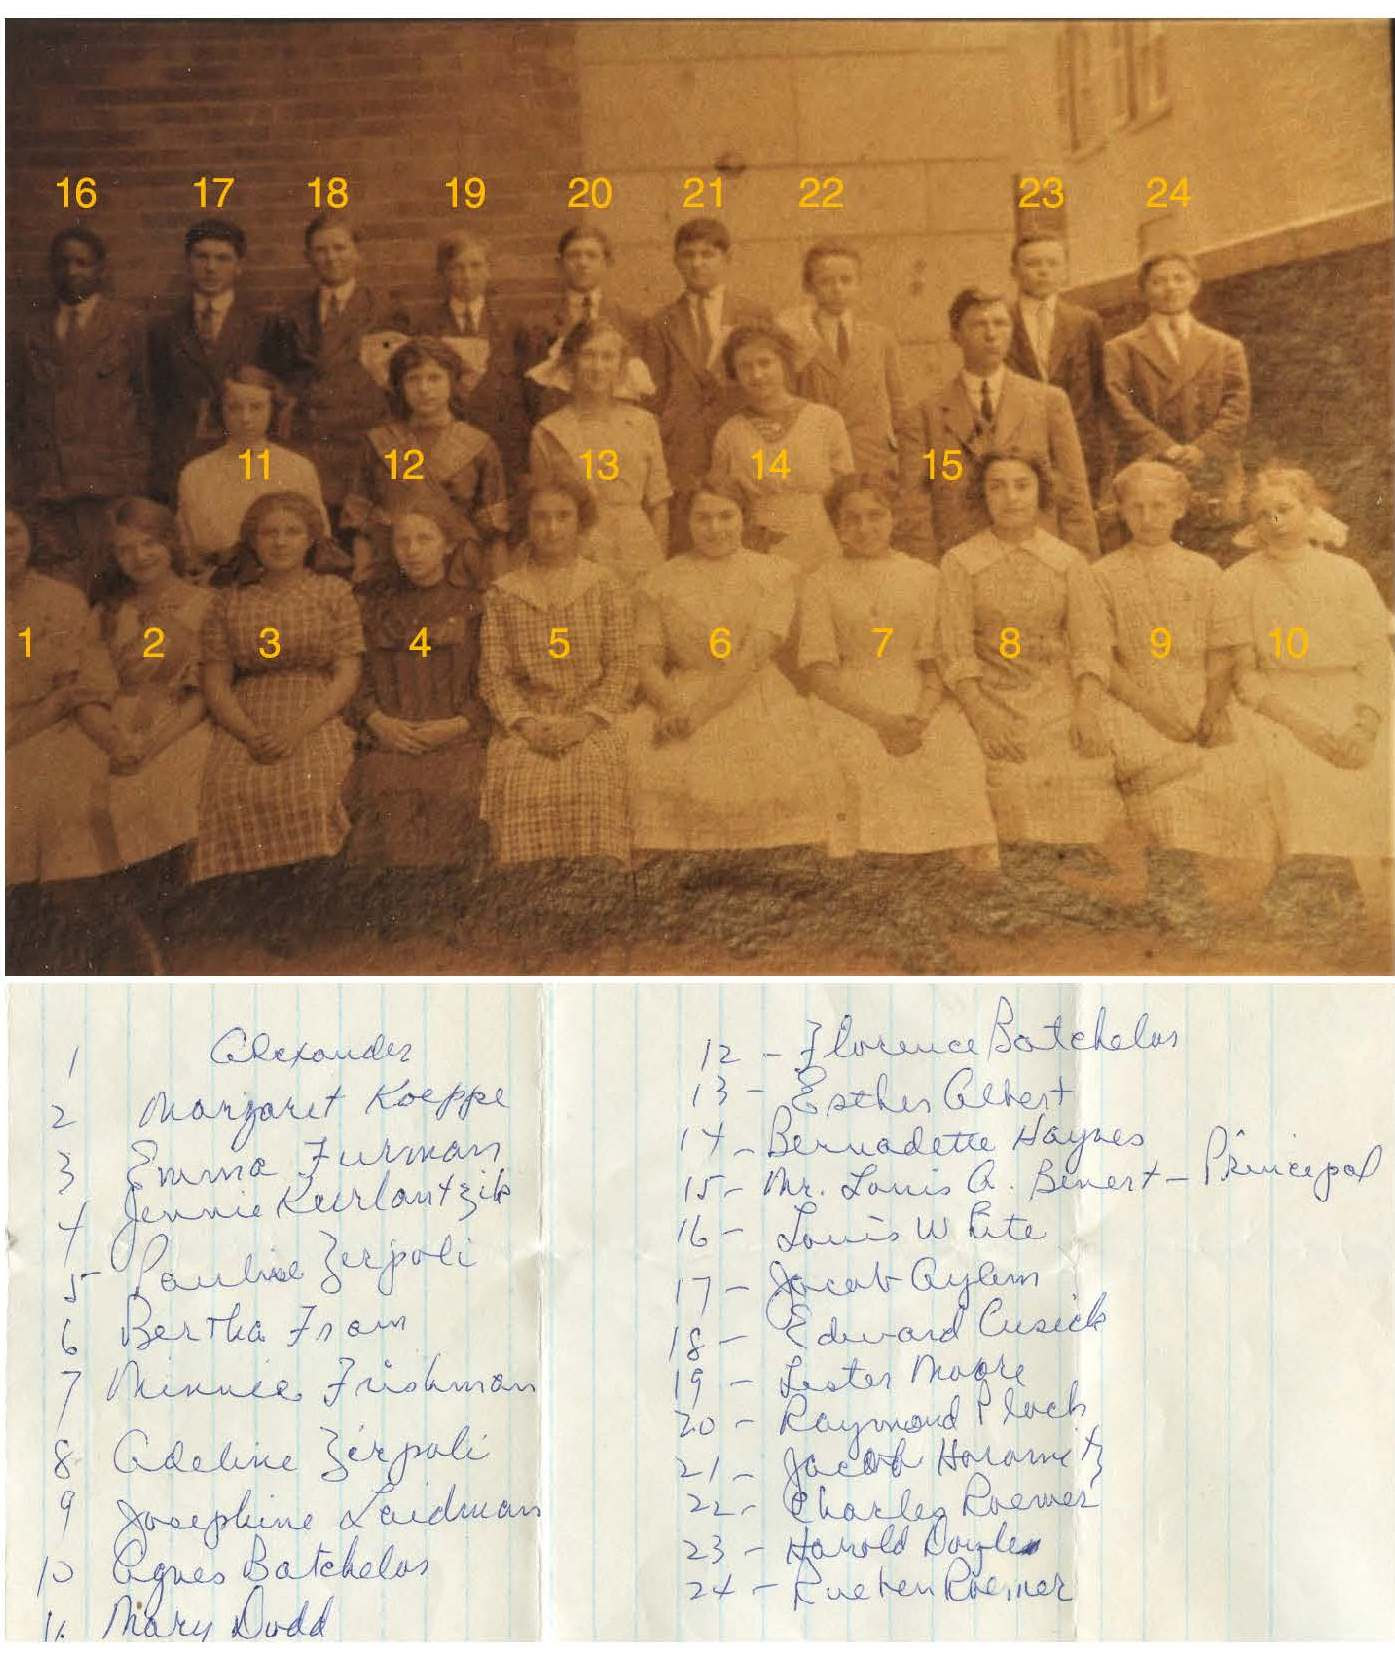 16 17 18 19 20 21 22 23 24
11 12 13 14 15
1 2 3 4 5 6 7 8 9 10
1 Alexander
2 Margaret Koeppe
3 Emma Furman
4 Jennie Kurlantzik
5 Pauline Zerpoli
6 Bertha Fram
7 Minnie Frishman
8 Adeline Zerpoli
9 Josephine Laidman
10 Agnes Batchelor
11. Mary Dodd
12 - Florence Batchelor
13 - Esther Albert
14 - Bernadette Haynes
15 - Mr. Louis A. Benert - Principal
16 - Louis White
17 - Jacob
18 - Edward Cusick
19 - Lester Moore
20 - Raymond Ploch
21 - Jacob Horowitz
22 - Charles Roemer
23 - Harold Doyle
24 - Rueben Roemer